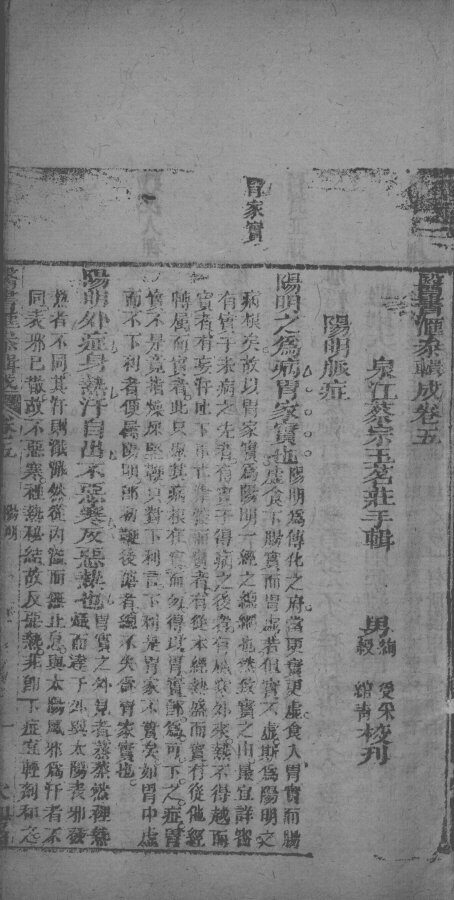 胃家實
醫書滙叅輯成卷五
泉江蔡宗玉茗莊手輯
男絢 受采
校刋
陽明脈症
陽明之為病胃家實也陽明為傳化之府當更實更虛食入胃實而腸
虛食下腸實而胃虛若但實不虛斯為陽明之
病根矣故以胃家實為陽明一經之總綱也然致實之由最宜詳審
有實于未病之先者有實于得病之後者有風寒外束熱不得越而
實者有妄汗吐下重亡津液而實者有從本經熱盛而實有從他經
轉屬而實者此只舉其病根在實而勿得以胃實卽為可下之症胃
實不是竟指燥屎堅鞕只對下利言下利是胃家不實矣如胃中虛
而不下利者便屬陽明卽初鞕後溏者總不失為胃家實也
陽明外症身熱汗自出不惡寒反惡熱也胃實之外見者蒸蒸然裡熱
熾而達于外與太陽表邪發
熱者不同其汗則濈濈然從內溢而無止息與太陽風邪為汗者不
同表邪已散故不惡寒裡熱秘結故反惡熱 卽下症宜輕劑和之
醫書滙叅輯成 卷五 陽明 一